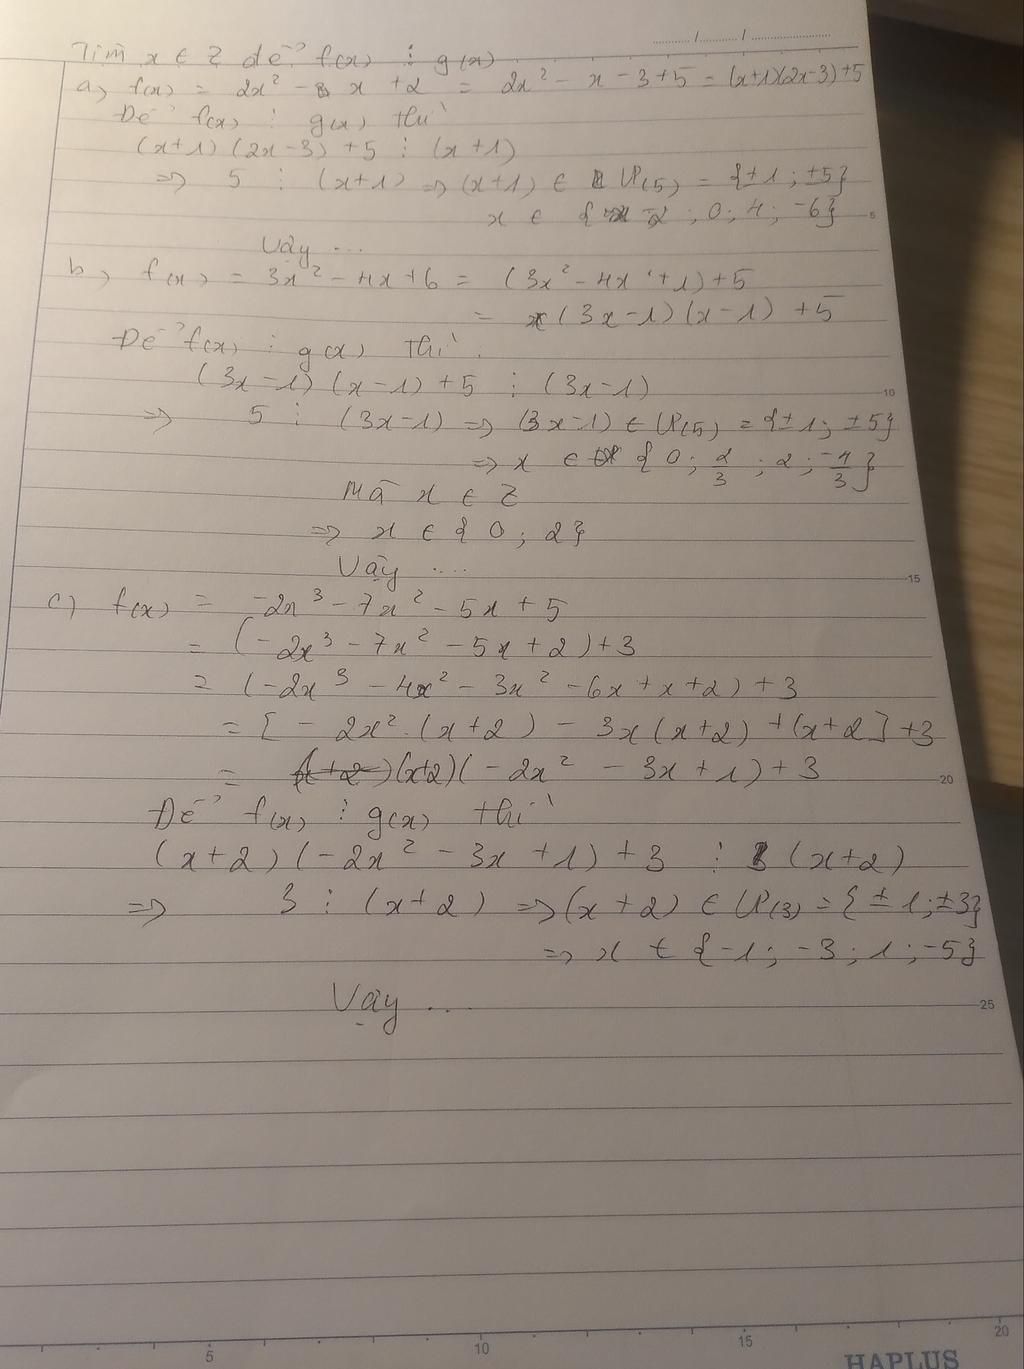 Tìm x ∈ Z để f(x) ⋮ g(x)
a, f(x) = 2x² - x + 2 = 2x² - x - 3 + 5 = (x+1)(2x-3)+5
Để f(x) ⋮ g(x) thì
(x+1) (2x-3) +5 ⋮ (x+1)
=> 5 ⋮ (x+1) => (x+1) ∈ Ư(5) = {±1 ; ±5}
x ∈ { -2 ; 0 ; 4 ; -6}
Vậy ...
b, f(x) = 3x² - 4x + 6 = (3x² - 4x + 1) + 5
= (3x-1) (x-1) + 5
Để f(x) ⋮ g(x) thì
(3x-1) (x-1) + 5 ⋮ (3x-1)
=> 5 ⋮ (3x-1) => (3x-1) ∈ Ư(5) = {±1 ; ±5}
=> x ∈ { 0 ; 2/3 ; 2 ; -4/3 }
Mà x ∈ Z
=> x ∈ { 0 ; 2}
Vậy ...
c, f(x) = -2x³ - 7x² - 5x + 5
= (-2x³ - 7x² - 5x + 2) + 3
= (-2x³ - 4x² - 3x² - 6x + x + 2) + 3
= [ - 2x² . (x+2) - 3x (x+2) + (x+2] + 3
= (x+2)(-2x² - 3x + 1) + 3
Để f(x) ⋮ g(x) thì
(x+2) (-2x² - 3x + 1) + 3 ⋮ (x+2)
=> 3 ⋮ (x+2) => (x+2) ∈ Ư(3) = {±1 ; ±3}
=> x ∈ {-1 ; -3 ; 1 ; -5}
Vậy ...
5
10
15
20
25
5 10 15 20
HAPLUS